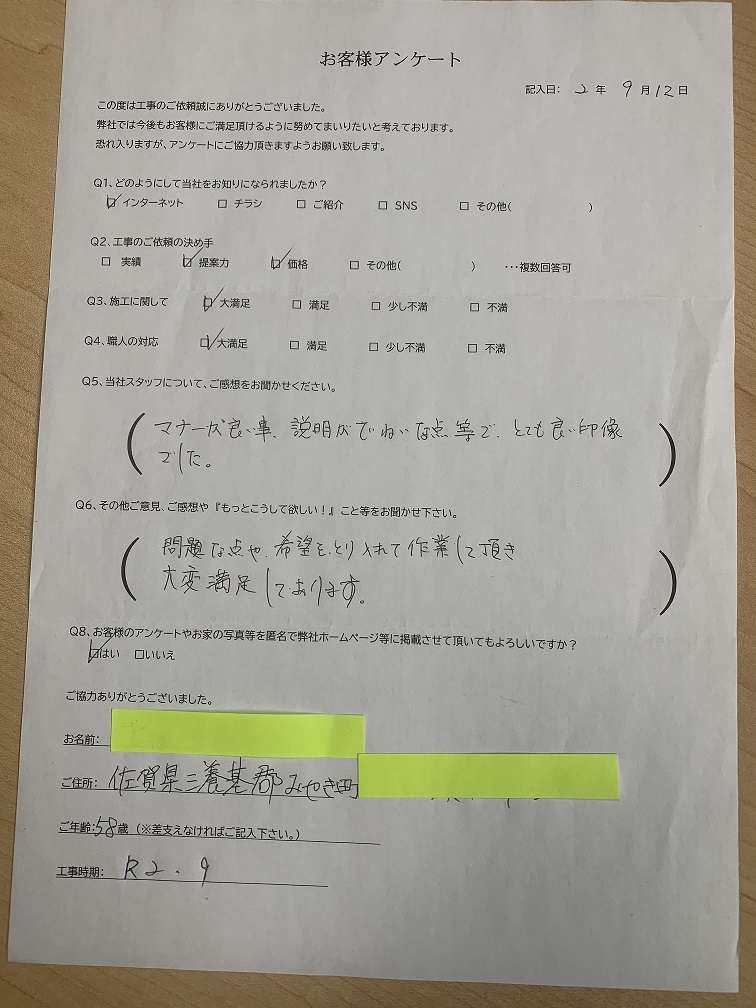 お客様アンケート
記入日: 2 年 9 月 12 日
この度は工事のご依頼誠にありがとうございました。
弊社では今後もお客様にご満足頂けるように努めてまいりたいと考えております。
恐れ入りますが、アンケートにご協力頂きますようお願い致します。
Q1、どのようにして当社をお知りになられましたか？
☑ インターネット □ チラシ □ ご紹介 □ SNS □ その他( )
Q2、工事のご依頼の決め手
□ 実績 ☑ 提案力 ☑ 価格 □ その他( ) ・・・複数回答可
Q3、施工に関して ☑ 大満足 □ 満足 □ 少し不満 □ 不満
Q4、職人の対応 ☑ 大満足 □ 満足 □ 少し不満 □ 不満
Q5、当社スタッフについて、ご感想をお聞かせください。
マナーが良い事、説明がていねいな点等で、とても良い印像
でした。
Q6、その他ご意見、ご感想や『もっとこうして欲しい！』こと等をお聞かせ下さい。
問題な点や、希望をとり入れて作業して頂き
大変満足しております。
Q8、お客様のアンケートやお家の写真等を匿名で弊社ホームページ等に掲載させて頂いてもよろしいですか？
☑はい □いいえ
ご協力ありがとうございました。
お名前:
ご住所: 佐賀県三養基郡みやき町
ご年齢:58歳 (※差支えなければご記入下さい。)
工事時期: R2.9